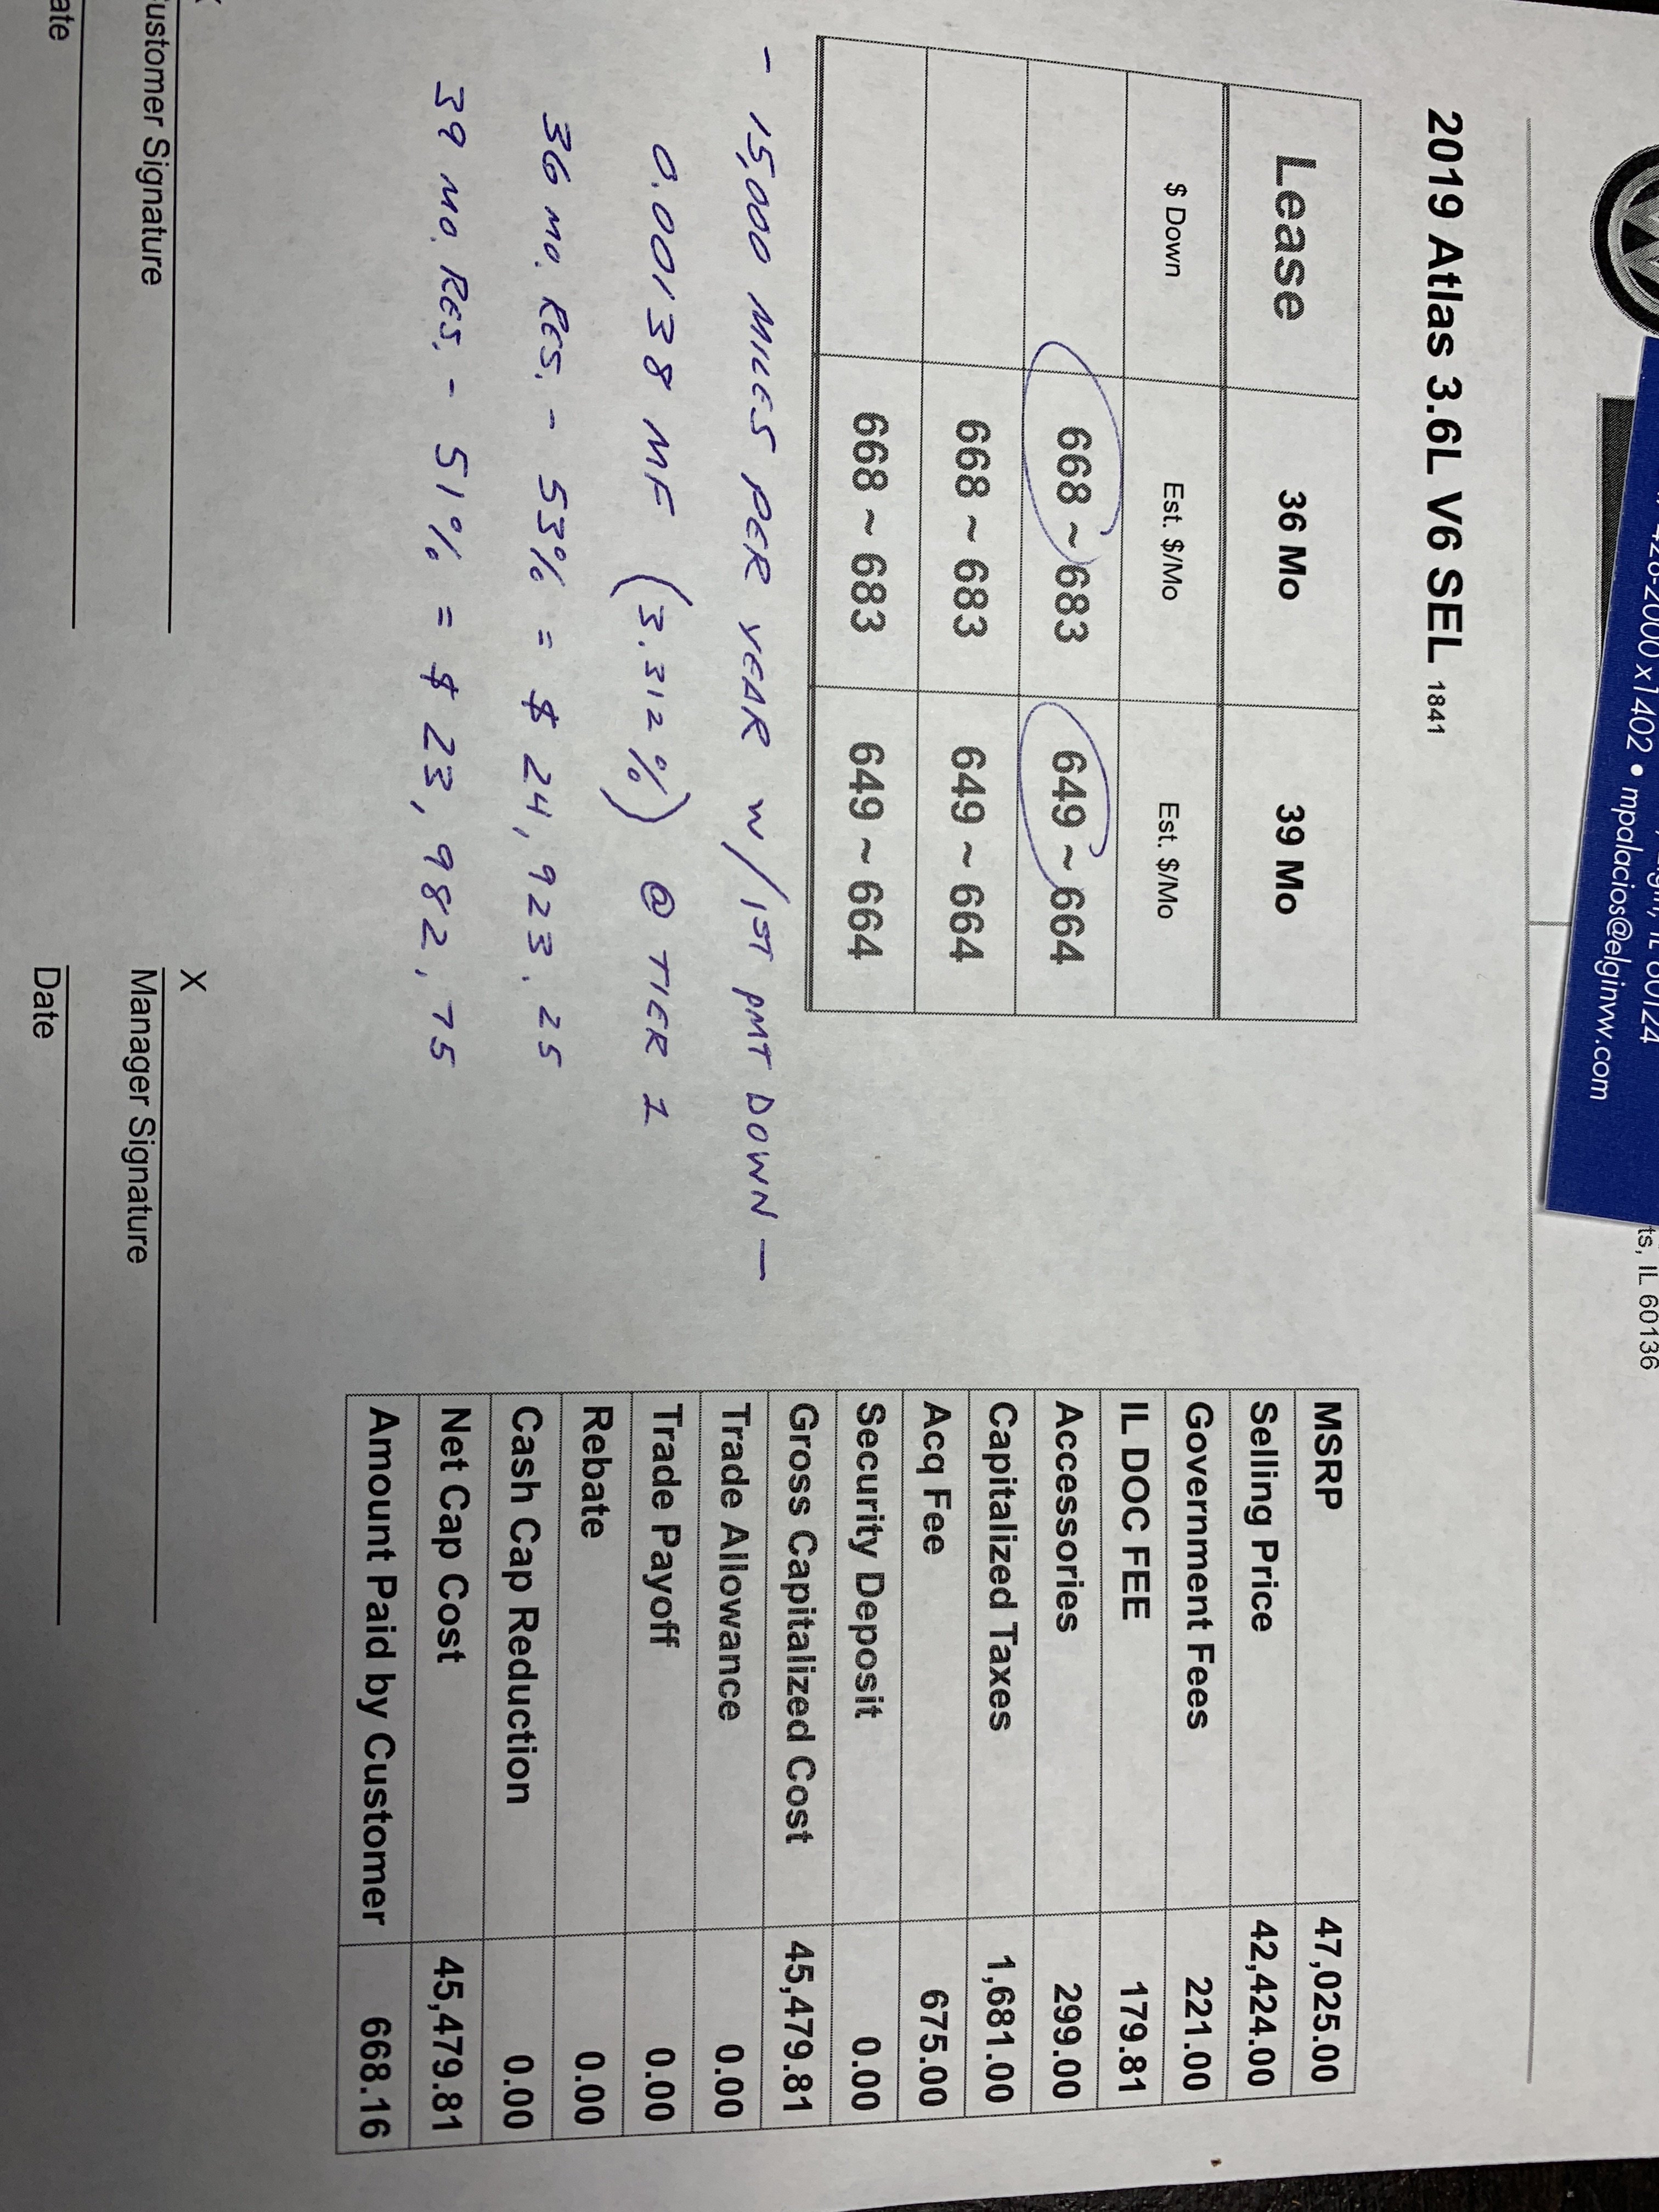 x1402 • mpalacios@elginvw.com
IL 60136
2019 Atlas 3.6L V6 SEL 1841
Lease 36 Mo 39 Mo
$ Down Est. $/Mo Est. $/Mo
668 ~ 683 649 ~ 664
668 ~ 683 649 ~ 664
668 ~ 683 649 ~ 664
- 15,000 MILES PER YEAR W/ 1ST PMT DOWN -
0.00138 MF (3.312%) @ TIER 1
36 MO. RES. - 53% = $ 24,923.25
39 MO. RES. - 51% = $ 23,982.75
MSRP 47,025.00
Selling Price 42,424.00
Government Fees 221.00
IL DOC FEE 179.81
Accessories 299.00
Capitalized Taxes 1,681.00
Acq Fee 675.00
Security Deposit 0.00
Gross Capitalized Cost 45,479.81
Trade Allowance 0.00
Trade Payoff 0.00
Rebate 0.00
Cash Cap Reduction 0.00
Net Cap Cost 45,479.81
Amount Paid by Customer 668.16
X
ustomer Signature
Manager Signature
ate
Date